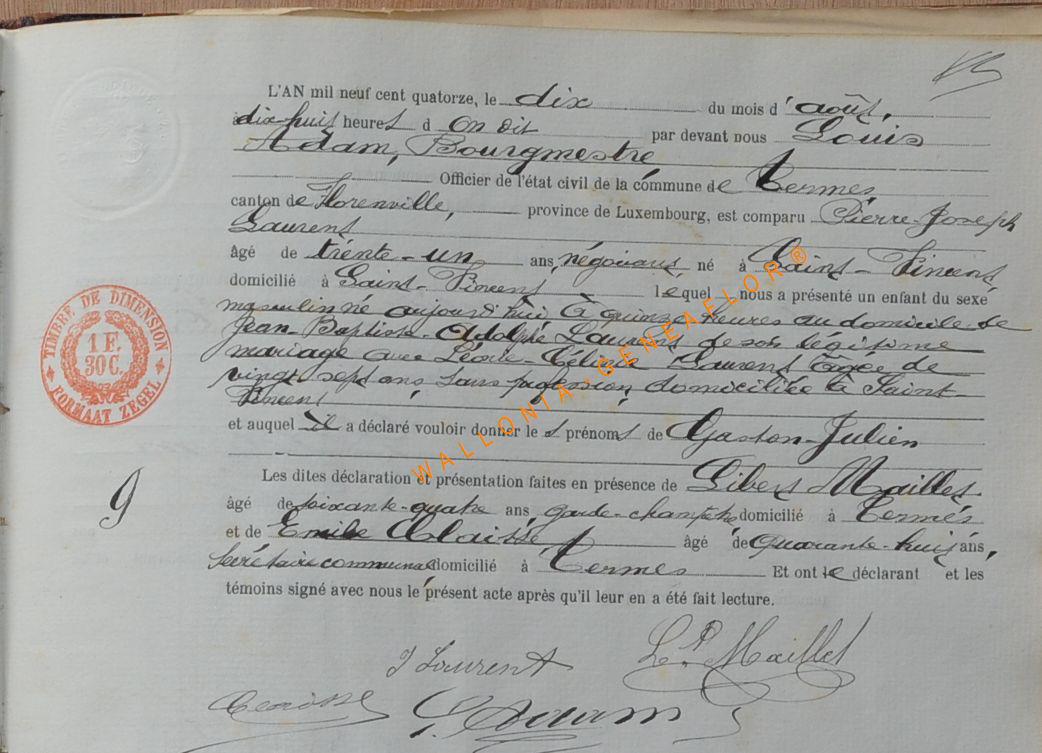 L'AN mil neuf cent quatorze, le dix du mois d'août,
à dix-huit heures d on dit par devant nous Louis
Adam, Bourgmestre,
Officier de l'état civil de la commune de Termes,
canton de Florenville, province de Luxembourg, est comparu Pierre-Joseph
Laurent
âgé de trente-un ans, négociant, né à Saint-Vincent,
domicilié à Saint-Vincent lequel nous a présenté un enfant du sexe
masculin né aujourd'hui à quinze heures au domicile de
Jean-Baptiste-Adolphe Laurent de son légitime
mariage avec Léonie-Célina Laurent âgée de
vingt-sept ans, sans profession, domiciliée à Saint-
Vincent
et auquel il a déclaré vouloir donner les prénoms de Gaston-Julien
Les dites déclaration et présentation faites en présence de Libert Maillet,
âgé de soixante-quatre ans, garde-champêtre domicilié à Termes
et de Emile Claisse âgé de quarante-huit ans,
secrétaire communal domicilié à Termes Et ont le déclarant et les
témoins signé avec nous le présent acte après qu'il leur en a été fait lecture.
9
TIMBRE DE DIMENSION
1 F.
30 C.
FORMAAT ZEGEL
WALLONIA-GENEAFLOR®
J Laurent
L. P. Maillet
L. Adam